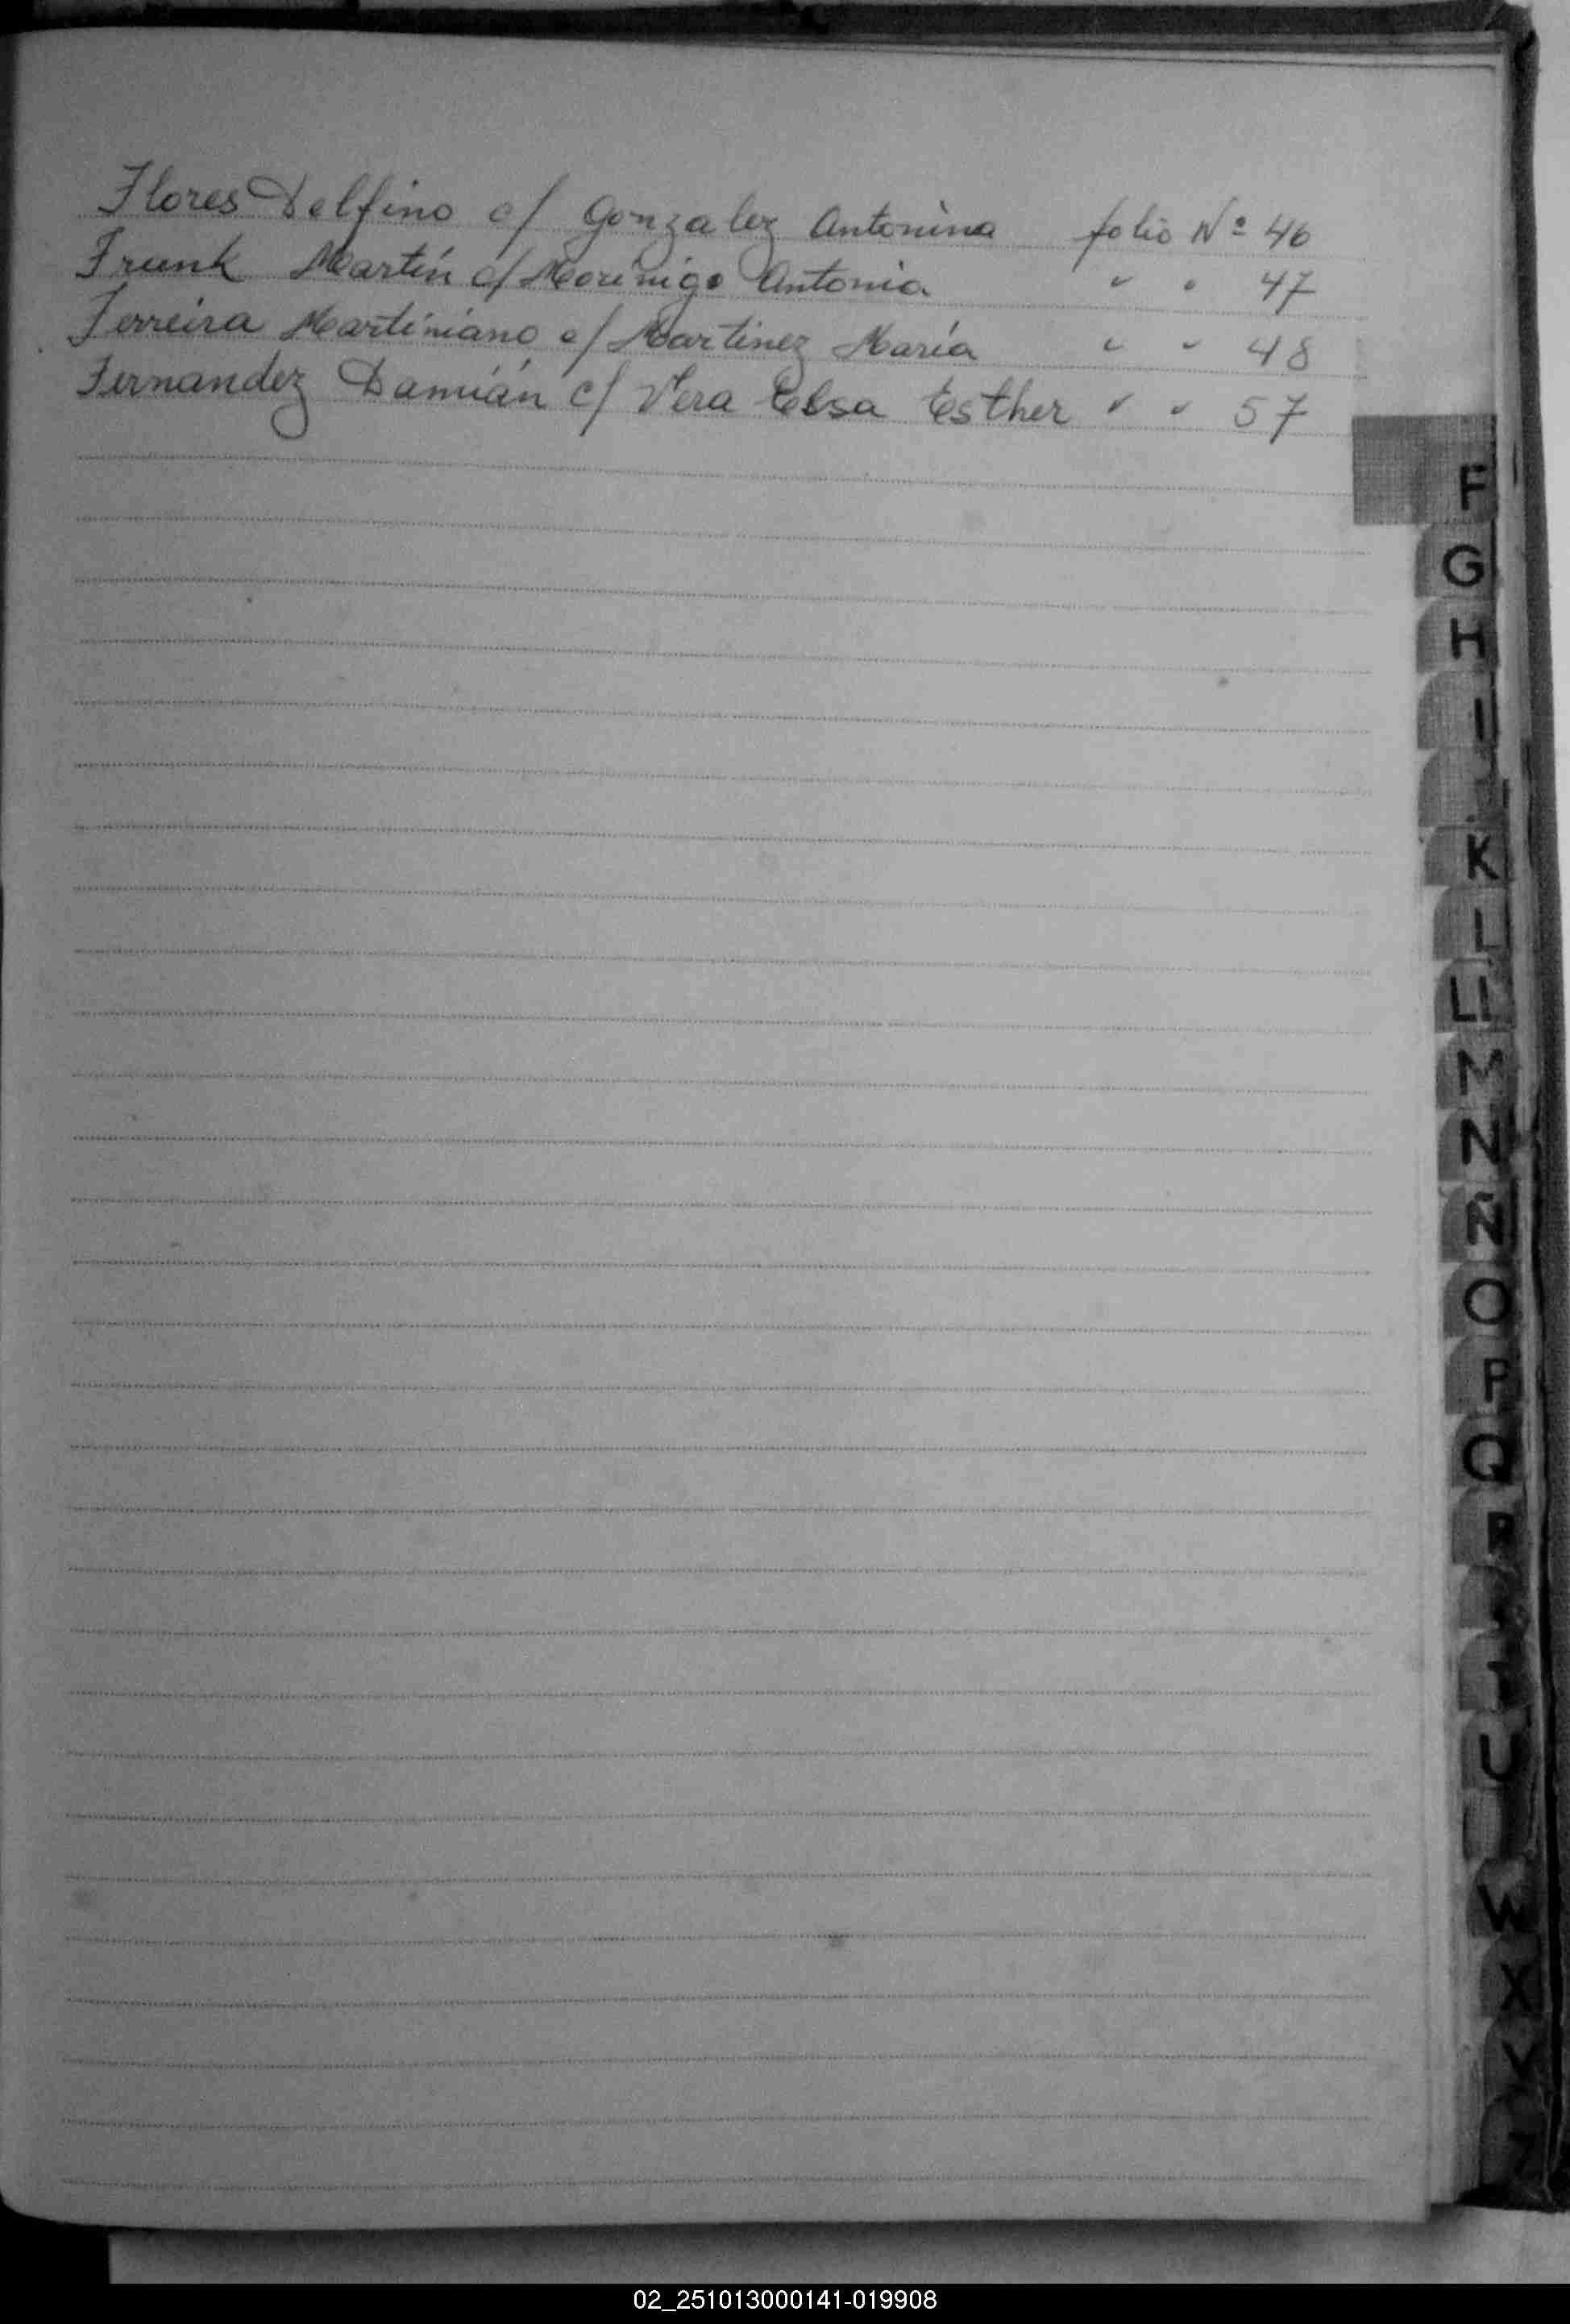 Flores Delfino c/ Gonzalez Antonina folio Nº 46
Frunk Martín c/ Morínigo Antonia " " 47
Ferreira Martiniano c/ Martinez María " " 48
Fernandez Damián c/ Vera Elsa Esther " " 57
F
G
H
I
J
K
L
Ll
M
N
Ñ
O
P
Q
R
T
U
W
X
Y
Z
02_251013000141-019908